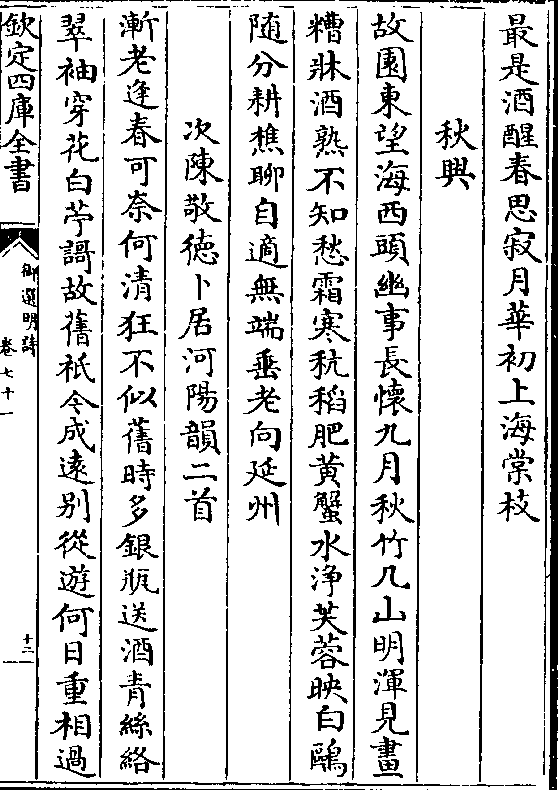 最是酒醒春思寂月華初上海棠枝
秋興
故園東望海西頭幽事長懷九月秋竹几山明渾見畫
糟牀酒熟不知愁霜寒秔稻肥黄蟹水浄芙蓉映白鷗
随分耕樵聊自適無端垂老向延州
次陳敬徳卜居河陽韻二首
漸老逢春可奈何清狂不似舊時多銀瓶送酒青絲絡
翠袖穿花白苧謌故舊祇今成遠别從遊何日重相過
欽定四庫全書
御選明詩
卷七十一
十二